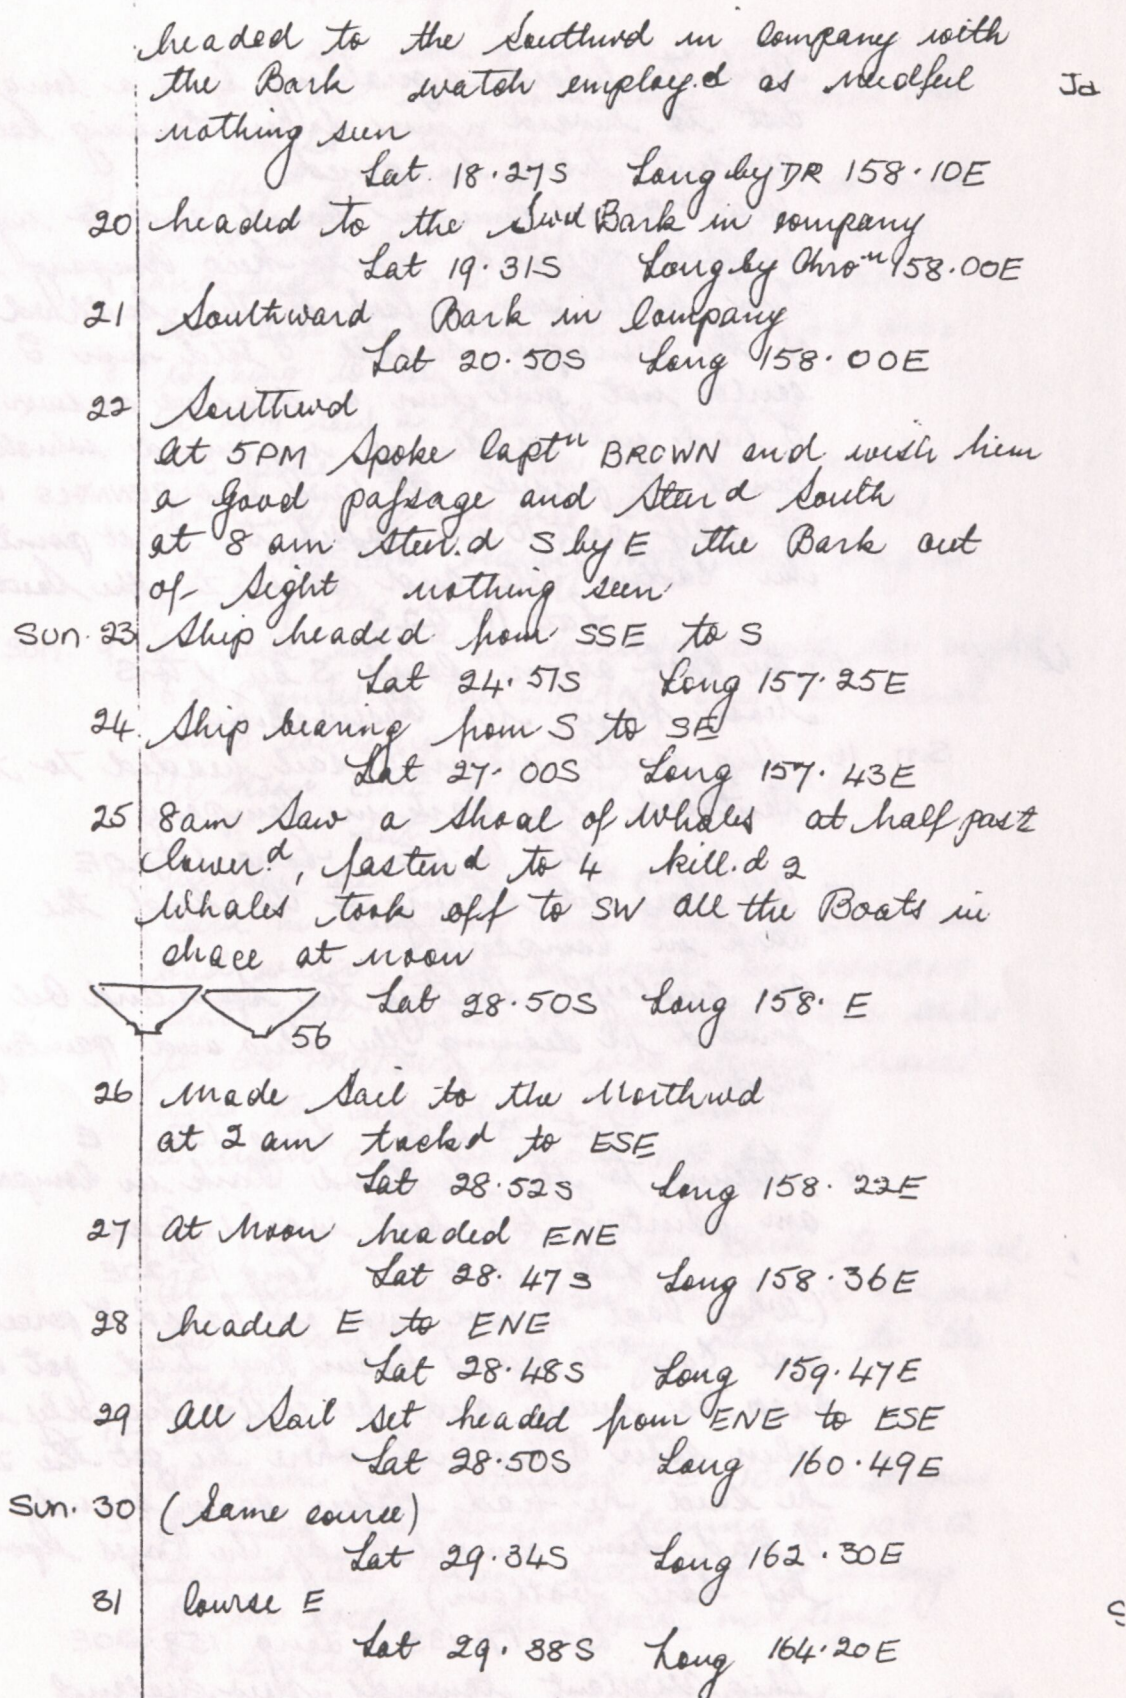 headed to the Southwd in Company with
the Bark watch employ.d as needful Ja
nothing seen
Lat. 18.27S Long by DR 158.10E
20 headed to the Swd Bark in company
Lat 19.31S Long by Chro-n 158.00E
21 Southward Bark in Company
Lat 20.50S Long 158.00E
22 Southwd
at 5PM Spoke Captn BROWN and wish him
a Good passage and Steerd South
at 8 am steer.d S by E the Bark out
of Sight nothing seen
Sun. 23 Ship headed from SSE to S
Lat 24.51S Long 157.25E
24. Ship bearing from S to SE
Lat 27.00S Long 157.43E
25 8am Saw a Shoal of Whales at half past
lower.d, fastend to 4 kill.d 2
Whales took off to SW all the Boats in
chace at noon
Lat 28.50S Long 158. E
56
26 made Sail to the Northwd
at 2 am tackd to ESE
Lat 28.52S Long 158.22E
27 At Noon headed ENE
Lat 28.47S Long 158.36E
28 headed E to ENE
Lat 28.48S Long 159.47E
29 All Sail set headed from ENE to ESE
Lat 28.50S Long 160.49E
Sun. 30 (Same course)
Lat 29.34S Long 162.30E
31 Course E
Lat 29.38S Long 164.20E